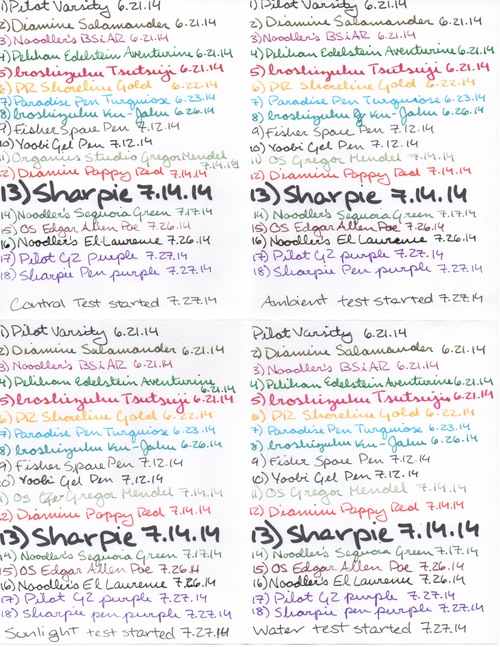 1) Pilot Varsity 6.21.14
2) Diamine Salamander 6.21.14
3) Noodler's BSiAR 6.21.14
4) Pelikan Edelstein Aventurine 6.21.14
5) Iroshizuku Tsutsuji 6.21.14
6) PR Shoreline Gold 6.22.14
7) Paradise Pen Turquoise 6.23.14
8) Iroshizuku Ku-Jaku 6.26.14
9) Fisher Space Pen 7.12.14
10) Yoobi Gel Pen 7.12.14
11) Organics Studio Gregor Mendel 7.14.14
12) Diamine Poppy Red 7.14.14
13) Sharpie 7.14.14
14) Noodler's Sequoia Green 7.17.14
15) OS Edgar Allen Poe 7.26.14
16) Noodler's El Lawrence 7.26.14
17) Pilot G2 Purple 7.27.14
18) Sharpie Pen purple 7.27.14
Control Test started 7.27.14
1) Pilot Varsity 6.21.14
2) Diamine Salamander 6.21.14
3) Noodler's BSiAR 6.21.14
4) Pelikan Edelstein Aventurine 6.21.14
5) Iroshizuku Tsutsuji 6.21.14
6) PR Shoreline Gold 6.22.14
7) Paradise Pen Turquoise 6.23.14
8) Iroshizuku Ku-Jaku 6.26.14
9) Fisher Space Pen 7.12.14
10) Yoobi Gel Pen 7.12.14
11) OS Gregor Mendel 7.14.14
12) Diamine Poppy Red 7.14.14
13) Sharpie 7.14.14
14) Noodler's Sequoia Green 7.17.14
15) OS Edgar Allan Poe 7.26.14
16) Noodler's El Lawrence 7.26.14
17) Pilot G2 purple 7.27.14
18) Sharpie Pen purple 7.27.14
Ambient test started 7.27.14
1) Pilot Varsity 6.21.14
2) Diamine Salamander 6.21.14
3) Noodler's BSiAR 6.21.14
4) Pelikan Edelstein Aventurine 6.21.14
5) Iroshizuku Tsutsuji 6.21.14
6) PR Shoreline Gold 6.22.14
7) Paradise Pen Turquoise 6.23.14
8) Iroshizuku Ku-Jaku 6.26.14
9) Fisher Space Pen 7.12.14
10) Yoobi Gel Pen 7.12.14
11) OS Gregor Mendel 7.14.14
12) Diamine Poppy Red 7.14.14
13) Sharpie 7.14.14
14) Noodler's Sequoia Green 7.17.14
15) OS Edgar Allen Poe 7.26.14
16) Noodler's El Lawrence 7.26.14
17) Pilot G2 purple 7.27.14
18) Sharpie pen purple 7.27.14
Sunlight test started 7.27.14
Pilot Varsity 6.21.14
2) Diamine Salamander 6.21.14
3) Noodler's BSiAR 6.21.14
4) Pelikan Edelstein Aventurine 6.21.14
5) Iroshizuku Tsutsuji 6.21.14
6) PR Shoreline Gold 6.22.14
7) Paradise Pen Turquoise 6.23.14
8) Iroshizuku Ku-Jaku 6.26.14
9) Fisher Space Pen 7.12.14
10) Yoobi Gel Pen 7.12.14
11) OS Gregor Mendel 7.14.14
12) Diamine Poppy Red 7.14.14
13) Sharpie 7.14.14
14) Noodler's Sequoia Green 7.17.14
15) OS Edgar Allen Poe 7.26.14
16) Noodler's El Lawrence 7.26.14
17) Pilot G2 purple 7.27.14
18) Sharpie pen purple 7.27.14
Water test started 7.27.14